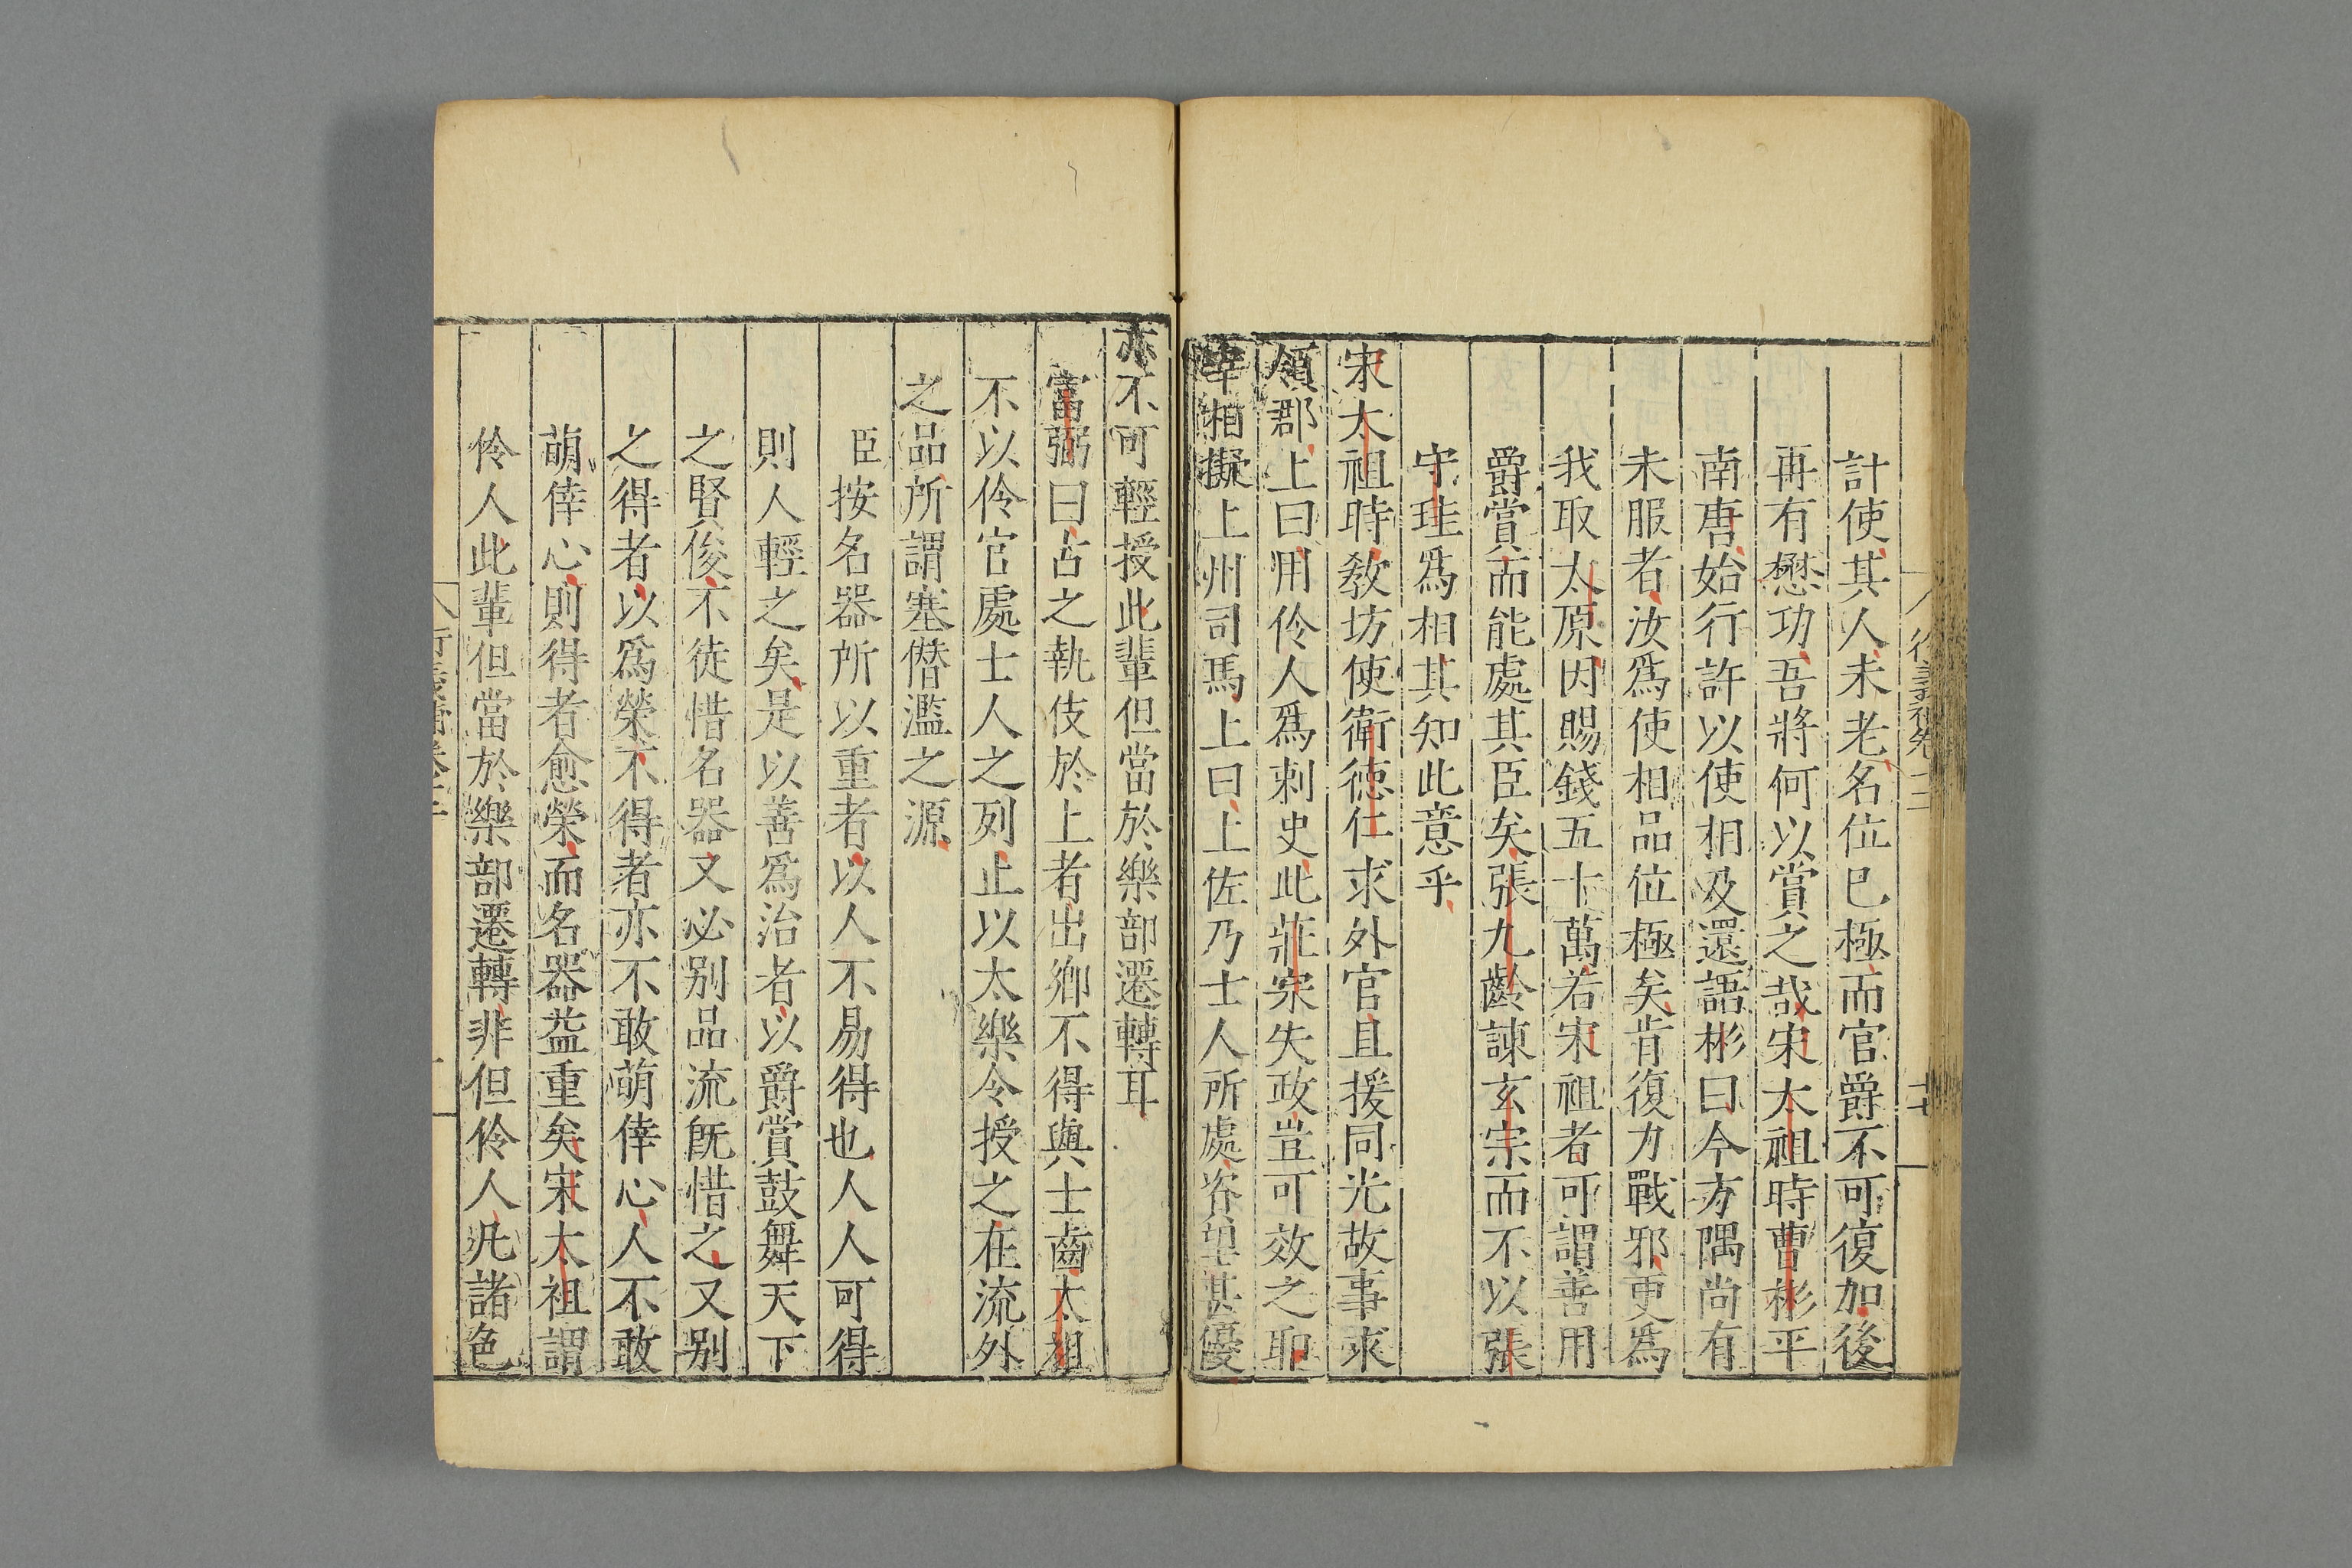 計使其人未老名位巳極而官爵不可復加後
再有懋功吾將何以賞之哉宋太祖時曹彬平
南唐始行許以使相及還語彬曰今方隅尚有
未服者汝爲使相品位極矣肯復力戰邪更爲
我取太原因賜錢五十萬若宋祖者可謂善用
爵賞而能處其臣矣張九齡諫玄宗而不以張
守珪爲相其知此意乎
宋太祖時敎坊使衛德仁求外官且援同光故事求
領郡上曰用伶人爲刺史此莊宗失政豈可效之耶
宰相擬上州司馬上曰上佐乃士人所處資望甚優
亦不可輕授此輩但當於樂部遷轉耳
富弼曰古之執伎於上者出鄉不得與士齒太祖
不以伶官處士人之列止以太樂令授之在流外
之品所謂塞僭濫之源
臣按名器所以重者以人不易得也人人可得
則人輕之矣是以善爲治者以爵賞鼓舞天下
之賢俊不徒惜名器又必别品流旣惜之又别
之得者以爲榮不得者亦不敢萌倖心人不敢
萌倖心則得者愈榮而名器益重矣宋太祖謂
伶人此輩但當於樂部遷轉非但伶人凡諸色